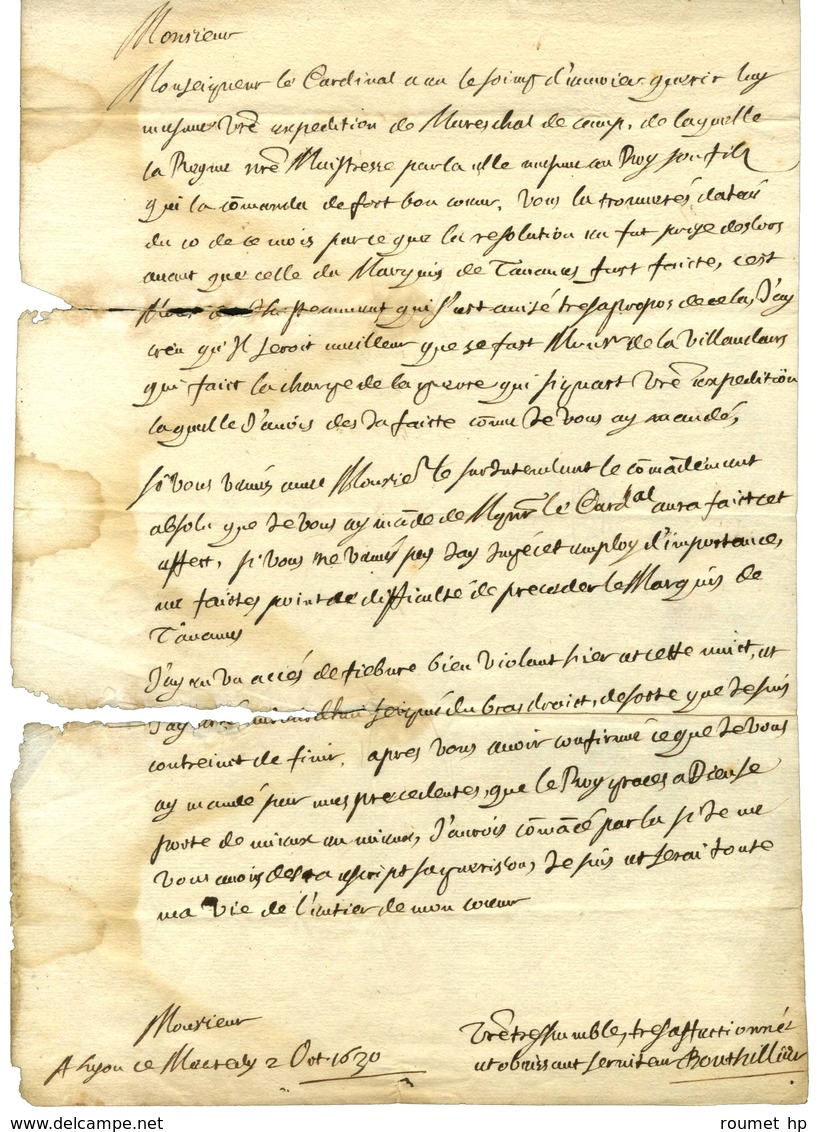 Monsieur
Monseigneur le Cardinal a eu le soing d'envoier querir luy
mesme vre expedition de Mareschal de camp, de laquelle
la Reyne nre Maistresse parla elle mesme au Roy son fils
qui la comanda de fort bon coeur. Vous la trouverés datée
du 10 de ce mois parce que la resolution en fut prise deslors
avant que celle du Marquis de Tavanes fust faicte, c'est
qui s'est avisé tres apropos de cela, J'ay
creu qu'Il seroit meilleur que ce fust Monsr de la Villeauclers
qui faict la charge de la guerre qui signast vre expeditiõn
laquelle J'avois desJa faicte come Je vous ay mandé,
si vous venés avec Monsier le surIntendant le comãdement
absolu que Je vous ay mãdé de Mgnr le Cardal aura faict cet
effect, si vous ne venés pas J'ay Jugé cet employ d'importance,
ne faictes point de difficulté de preceder le Marquis de
Tãvanes
J'ay eu un accés de fiebvre bien violant hier et cette nuict, et
J'ay esté seigné du bras droict, de sorte que Je suis
contreinct de finir, apres vous avoir confirmé ce que Je vous
ay mandé par mes precedentes, que le Roy graces a Dieu se
porte de mieux en mieux, J'aurois cõmãcé par la si Je ne
vous avois desJa escript sa guerison, Je suis et serai toute
ma vie de l'entier de mon coeur
Monsieur
A Lyon ce Mecredy 2 Oct 1630
Vre tres humble, tres affectionné
et obeissant serviteur Bouthillier
roumet hp